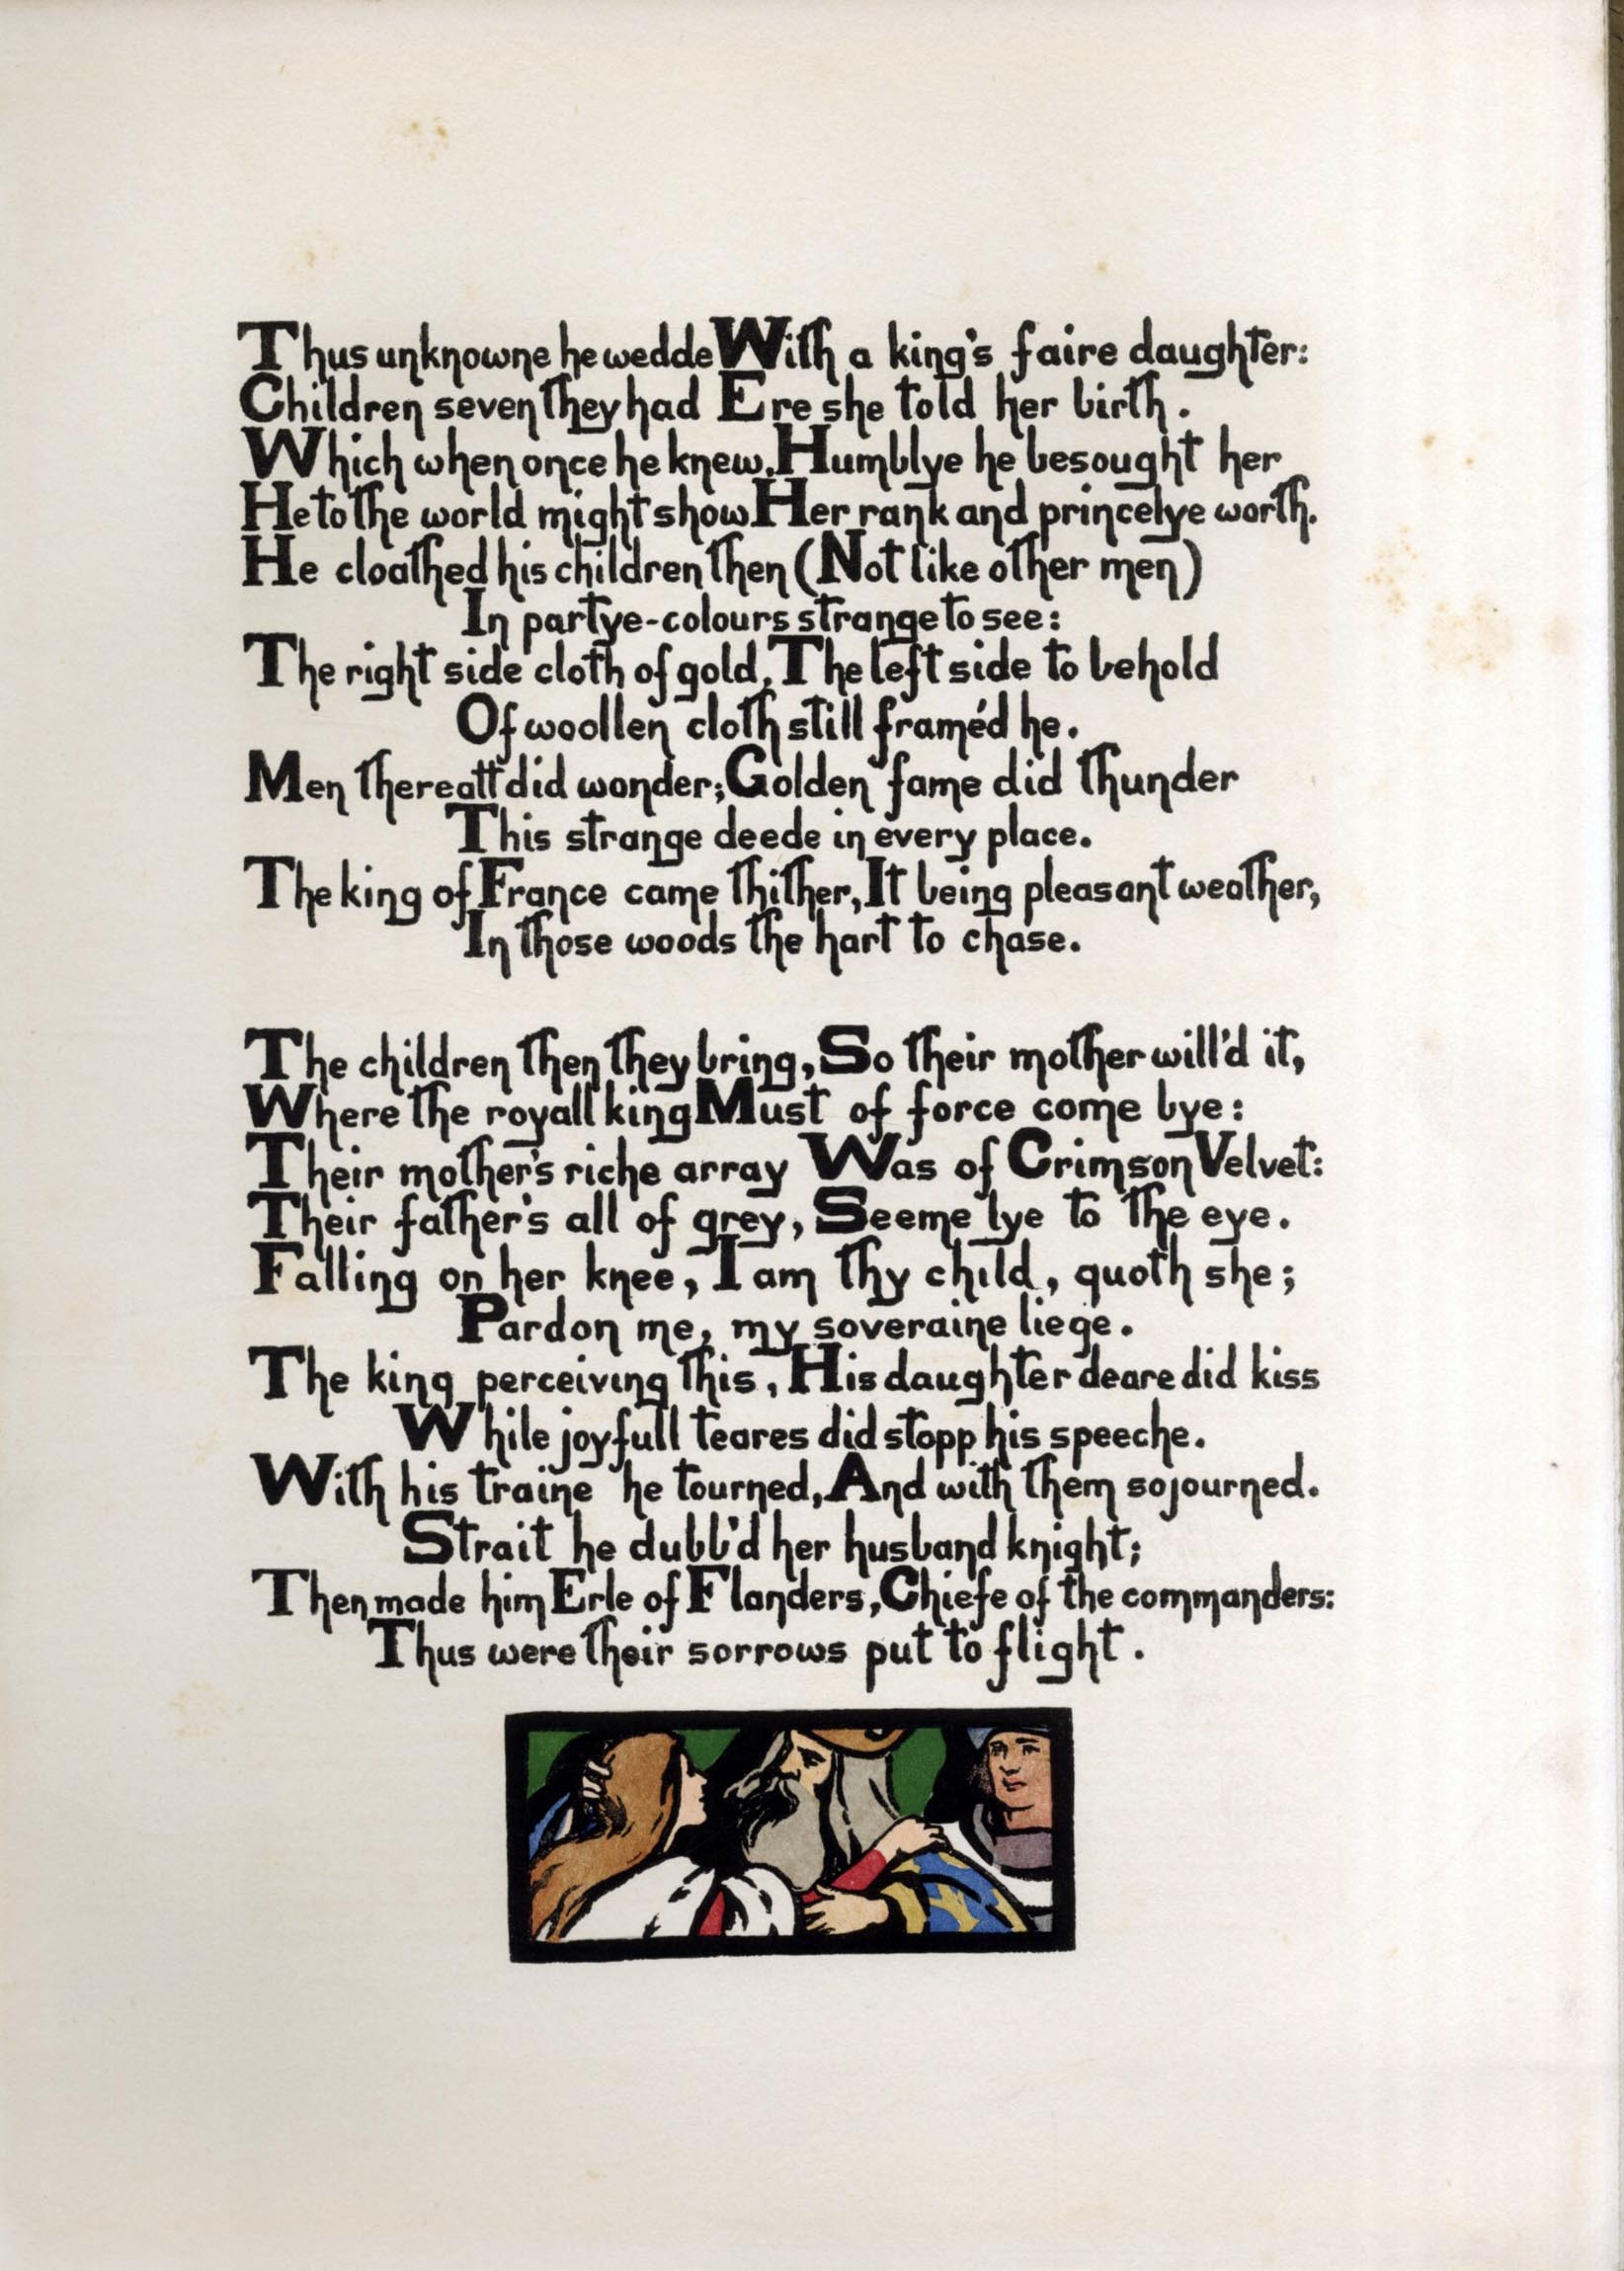 Thus unknowne he wedde With a king's faire daughter:
Children seven they had Ere she told her birth.
Which when once he knew, Humblye he besought her
He to the world might show Her rank and princelye worth.
He cloathed his children then (Not like other men)
In partye-colours strange to see:
The right side cloth of gold, The left side to behold
Of woollen cloth still framéd he.
Men thereatt did wonder; Golden fame did thunder
This strange deede in every place.
The king of France came thither, It being pleasant weather,
In those woods the hart to chase.
The children then they bring, So their mother will'd it,
Where the royall king Must of force come bye:
Their mother's riche array Was of Crimson Velvet:
Their father's all of grey, Seemelye to the eye.
Falling on her knee, I am thy child, quoth she;
Pardon me, my soveraine liege.
The king perceiving this, His daughter deare did kiss
While joyfull teares did stopp his speeche.
With his traine he tourned, And with them sojourned.
Strait he dubb'd her husband knight;
Then made him Erle of Flanders, Chiefe of the commanders:
Thus were their sorrows put to flight.